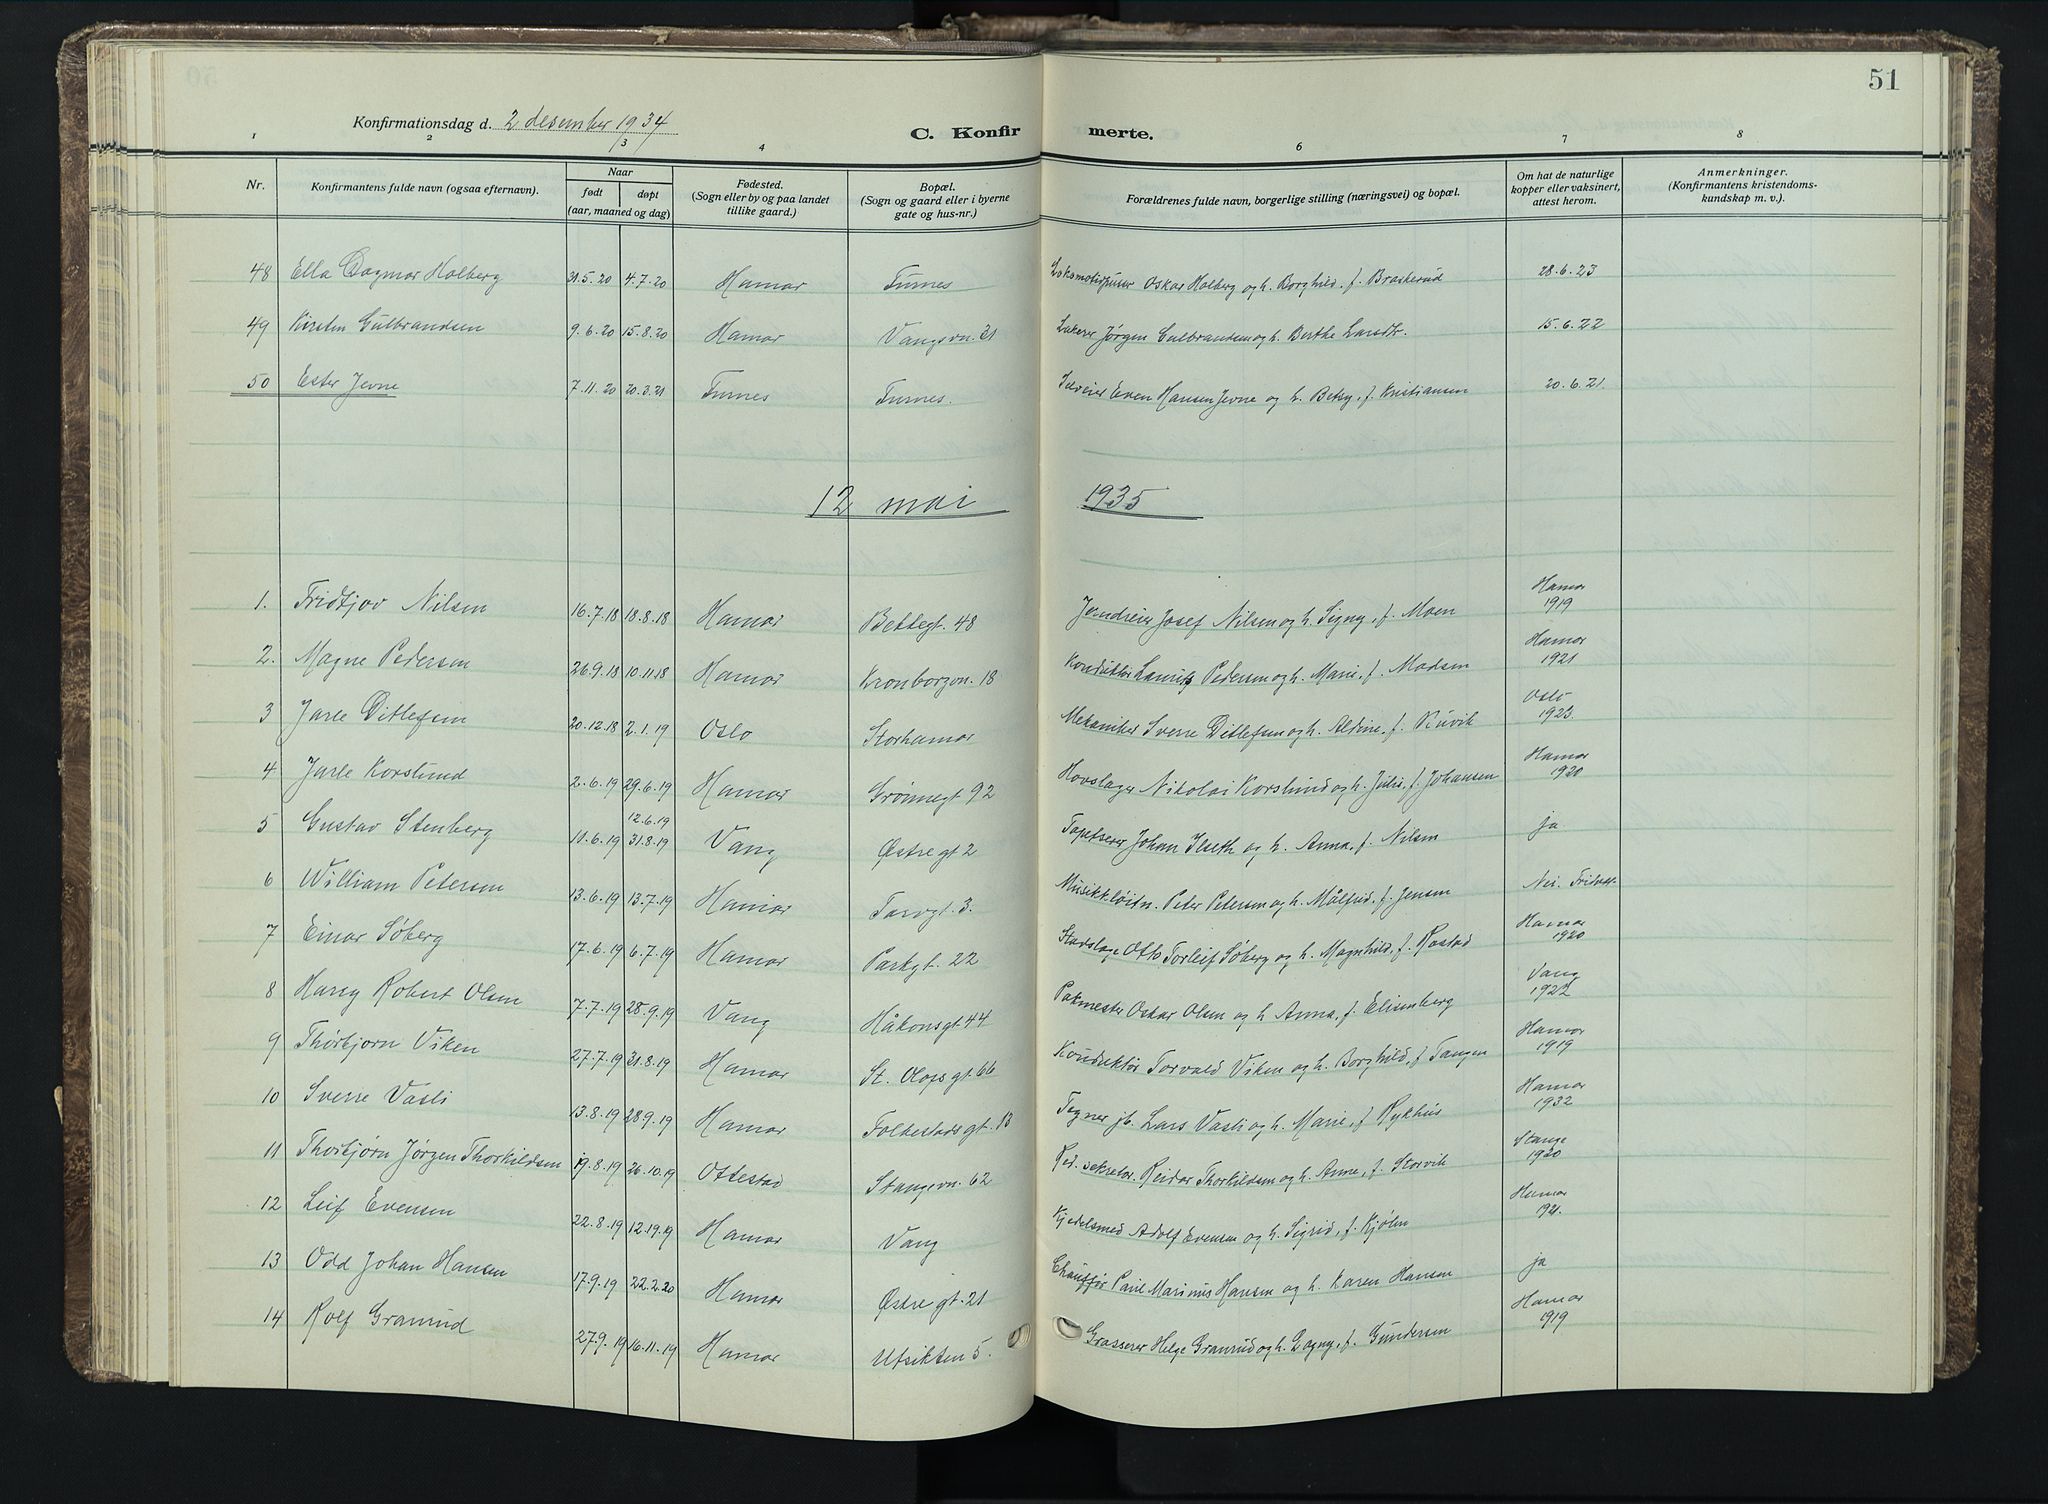 51
Konfirmationsdag d. 2 desember 1934
C. Konfirmerte.
1 2 3 4 6 7 8
Nr. Konfirmantens fulde navn (ogsaa efternavn). Naar født døpt (aar, maaned og dag) Fødested. (Sogn eller by og paa landet tillike gaard.) Bopæl. (Sogn og gaard eller i byerne gate og hus-nr.) Forældrenes fulde navn, borgerlige stilling (næringsvei) og bopæl. Om hat de naturlige kopper eller vaksinert, attest herom. Anmerkninger. (Konfirmantens kristendomskundskap m. v.)
48 Ella Dagmar Holberg 31.5.20 4.7.20 Hamar Furnes Lokomotivpusser Oskar Holberg og h. Borghild, f. Braskerud 28.6.23
49 Kirsten Gulbrandsen 9.6.20 15.8.20 Hamar Vangsvn. 31 Jørgen Gulbrandsen og h. Berthe Larsdtr. 15.6.22
50 Ester Jevne 7.11.20 20.3.21 Furnes Furnes. Even Hansen Jevne og h. Betsy, f. Kristiansen 20.6.21
12 mai 1935
1. Fridtjov Nilsen 16.7.18 18.8.18 Hamar Bekkegt. 48 Josef Nilsen og h. Signy, f. Moen Hamar 1919
2. Magne Pedersen 26.9.18 10.11.18 Hamar Kronborgvn. 18 Konduktør Lauritz Pedersen og h. Marie, f. Madsen Hamar 1921
3 Jarle Ditlefsen 20.12.18 2.1.19 Oslo Storhamar Mekaniker Sverre Ditlefsen og h. Aldine, f. Oslo 1923.
4 Jarle Korslund 2.6.19 29.6.19 Hamar Grønnegt 92 Hovslager Nikolai Korslund og h. Julie, f. Johansen Hamar 1920
5 Gustav Stenberg 11.6.19 12.6.19 31.8.19 Vang Østre gt 2 Tapetserer Johan Ilseth og h. Anna, f. Nilsen ja
6 William Petersen 13.6.19 13.7.19 Hamar Torvgt. 3. Musikkløitn. Peter Petersen og h. Målfrid, f. Jensen Nei.
7 Einar Søberg 17.6.19 6.7.19 Hamar Parkgt. 22 Otto Torleif Søberg og h. Magnhild, f. Rostad Hamar 1920
8 Harry Robert Olsen 7.7.19 28.9.19 Vang Håkonsgt. 44 Pakmester Oskar Olsen og h Anna, f. Elisenberg Vang 1922
9 Thorbjørn Viken 27.7.19 31.8.19 Hamar St. Olafs gt. 66 Konduktør Torvald Viken og h. Borghild, f. Tangen Hamar 1919
10 Sverre Vasli 13.8.19 28.9.19 Hamar Folkestadsgt. 13 Tegner jb. Lars Vasli og h. Marie, f Rykhus Hamar 1932
11 Thorbjørn Jørgen Thorkildsen 19.8.19 26.10.19 Ottestad Stangevn. 62 Red. sekretær. Reidar Thorkildsen og h. Anne, f. Storvik Stange 1920
12 Leif Evensen 22.8.19 12.19.19 Hamar Vang Kjedelsmed Adolf Evensen og h. Sigrid, f. Kjølen Hamar 1921.
13 Odd Johan Hansen 17.9.19 22.2.20 Hamar Østre gt. 21 Chauffør Paul Marinus Hansen og h. Karen Hansen ja
14 Rolf Granrud 27.9.19 16.11.19 Hamar Utsikten 5. Grosserer Helge Granrud og h. Dagny, f. Gundersen Hamar 1919